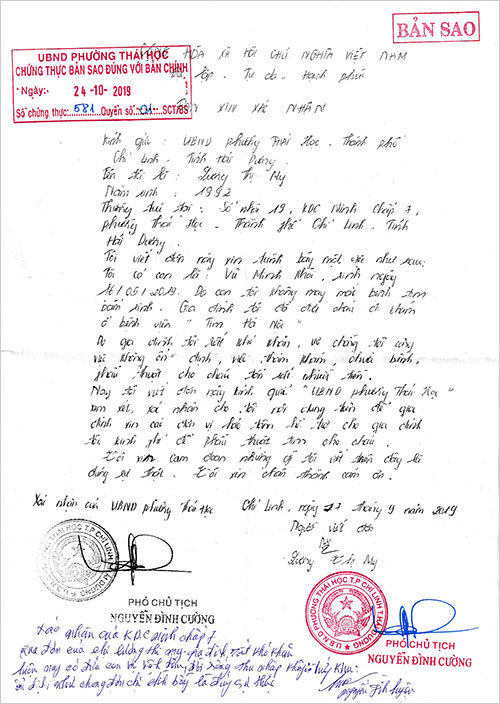 BẢN SAO
UBND PHƯỜNG THÁI HỌC
CHỨNG THỰC BẢN SAO ĐÚNG VỚI BẢN CHÍNH
Ngày: 24-10-2019
Số chứng thực: 581 Quyển số: 01 SCT/BS
CỘNG HÒA XÃ HỘI CHỦ NGHĨA VIỆT NAM
Độc lập - Tự do - Hạnh phúc
ĐƠN XIN XÁC NHẬN
Kính gửi: UBND phường Thái Học - Thành phố
Chí Linh - Tỉnh Hải Dương.
Tên tôi là: Lương Thị My
Năm sinh: 1992
Thường trú tại: Số nhà 19, KDC Ninh Chấp 7,
phường Thái Học - Thành phố Chí Linh - Tỉnh
Hải Dương.
Tôi viết đơn này xin trình bày một việc như sau:
Tôi có con là: Vũ Minh Nhôi, sinh ngày
16/05/2019. Do con tôi không may mắc bệnh tim
bẩm sinh. Gia đình tôi đã đưa cháu đi khám
ở bệnh viện "Tim Hà Nội"
Do gia đình tôi rất khó khăn, vợ chồng tôi công
việc không ổn định, việc thăm khám, chữa bệnh,
phẫu thuật cho cháu tốn rất nhiều tiền.
Nay tôi viết đơn này kính quý "UBND phường Thái Học"
xem xét, xác nhận cho tôi nội dung trên để gia
đình xin các đơn vị hảo tâm hỗ trợ cho gia đình
tôi kinh phí để phẫu thuật tim cho cháu.
Tôi xin cam đoan những gì tôi viết trên đây là
đúng sự thật. Tôi xin chân thành cảm ơn.
Xác nhận của UBND phường Thái Học
Chí Linh, ngày 17 tháng 9 năm 2019
Người viết đơn
My
Lương Thị My
U.B.N.D PHƯỜNG THÁI HỌC T.P CHÍ LINH T.HẢI DƯƠNG
PHÓ CHỦ TỊCH
NGUYỄN ĐÌNH CƯỜNG
U.B.N.D PHƯỜNG THÁI HỌC T.P CHÍ LINH T.HẢI DƯƠNG
PHÓ CHỦ TỊCH
NGUYỄN ĐÌNH CƯỜNG
Xác nhận của KDC Ninh chấp 7
Qua đơn của chị Lương thị my gia đình rất khó khăn
hiện nay có đứa con bị
ổn định, như trong đơn chị trình bày là đúng sự thực